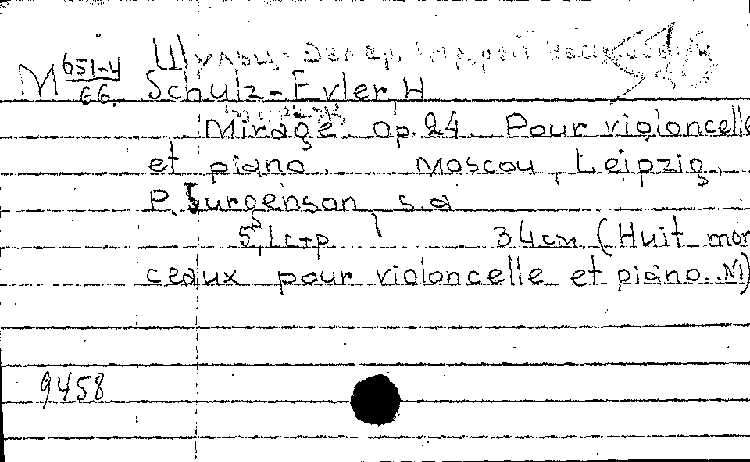 M 651-4/66.
Schulz-Evler, H
Mirage. Op. 24. Pour violoncelle
et piano. Moscou, Leipzig,
P. Jurgenson, s.a
5, 1c+p 34cm (Huit mor
ceaux pour violoncelle et piano. N1)
9458